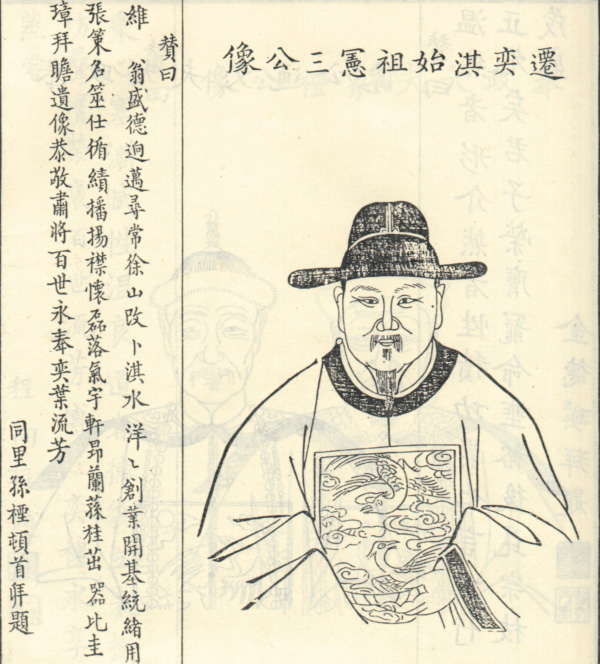 遷奕淇始祖憲三公像
贊曰
維 翁盛德迥邁尋常徐山改卜淇水洋〻創業開基統緒用
張策名筮仕循績播揚襟懷磊落氣宇軒昻蘭蓀桂茁器比圭
璋拜瞻遺像恭敬肅將百世永奉奕葉流芳
同里孫禋頓首拜題